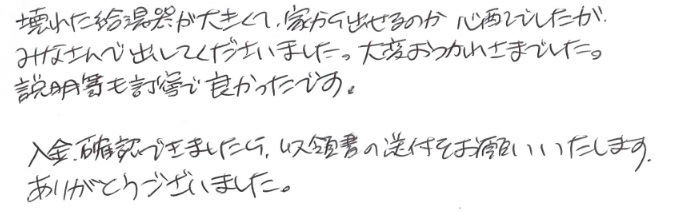 壊れた給湯器が大きくて、家から出せるのか 心配でしたが
みなさんで出してくださいました。大変おつかれさまでした。
説明等も訂寧で良かったです。
入金確認できましたら、収領書の送付をお願いいたします.
ありがとうございました。